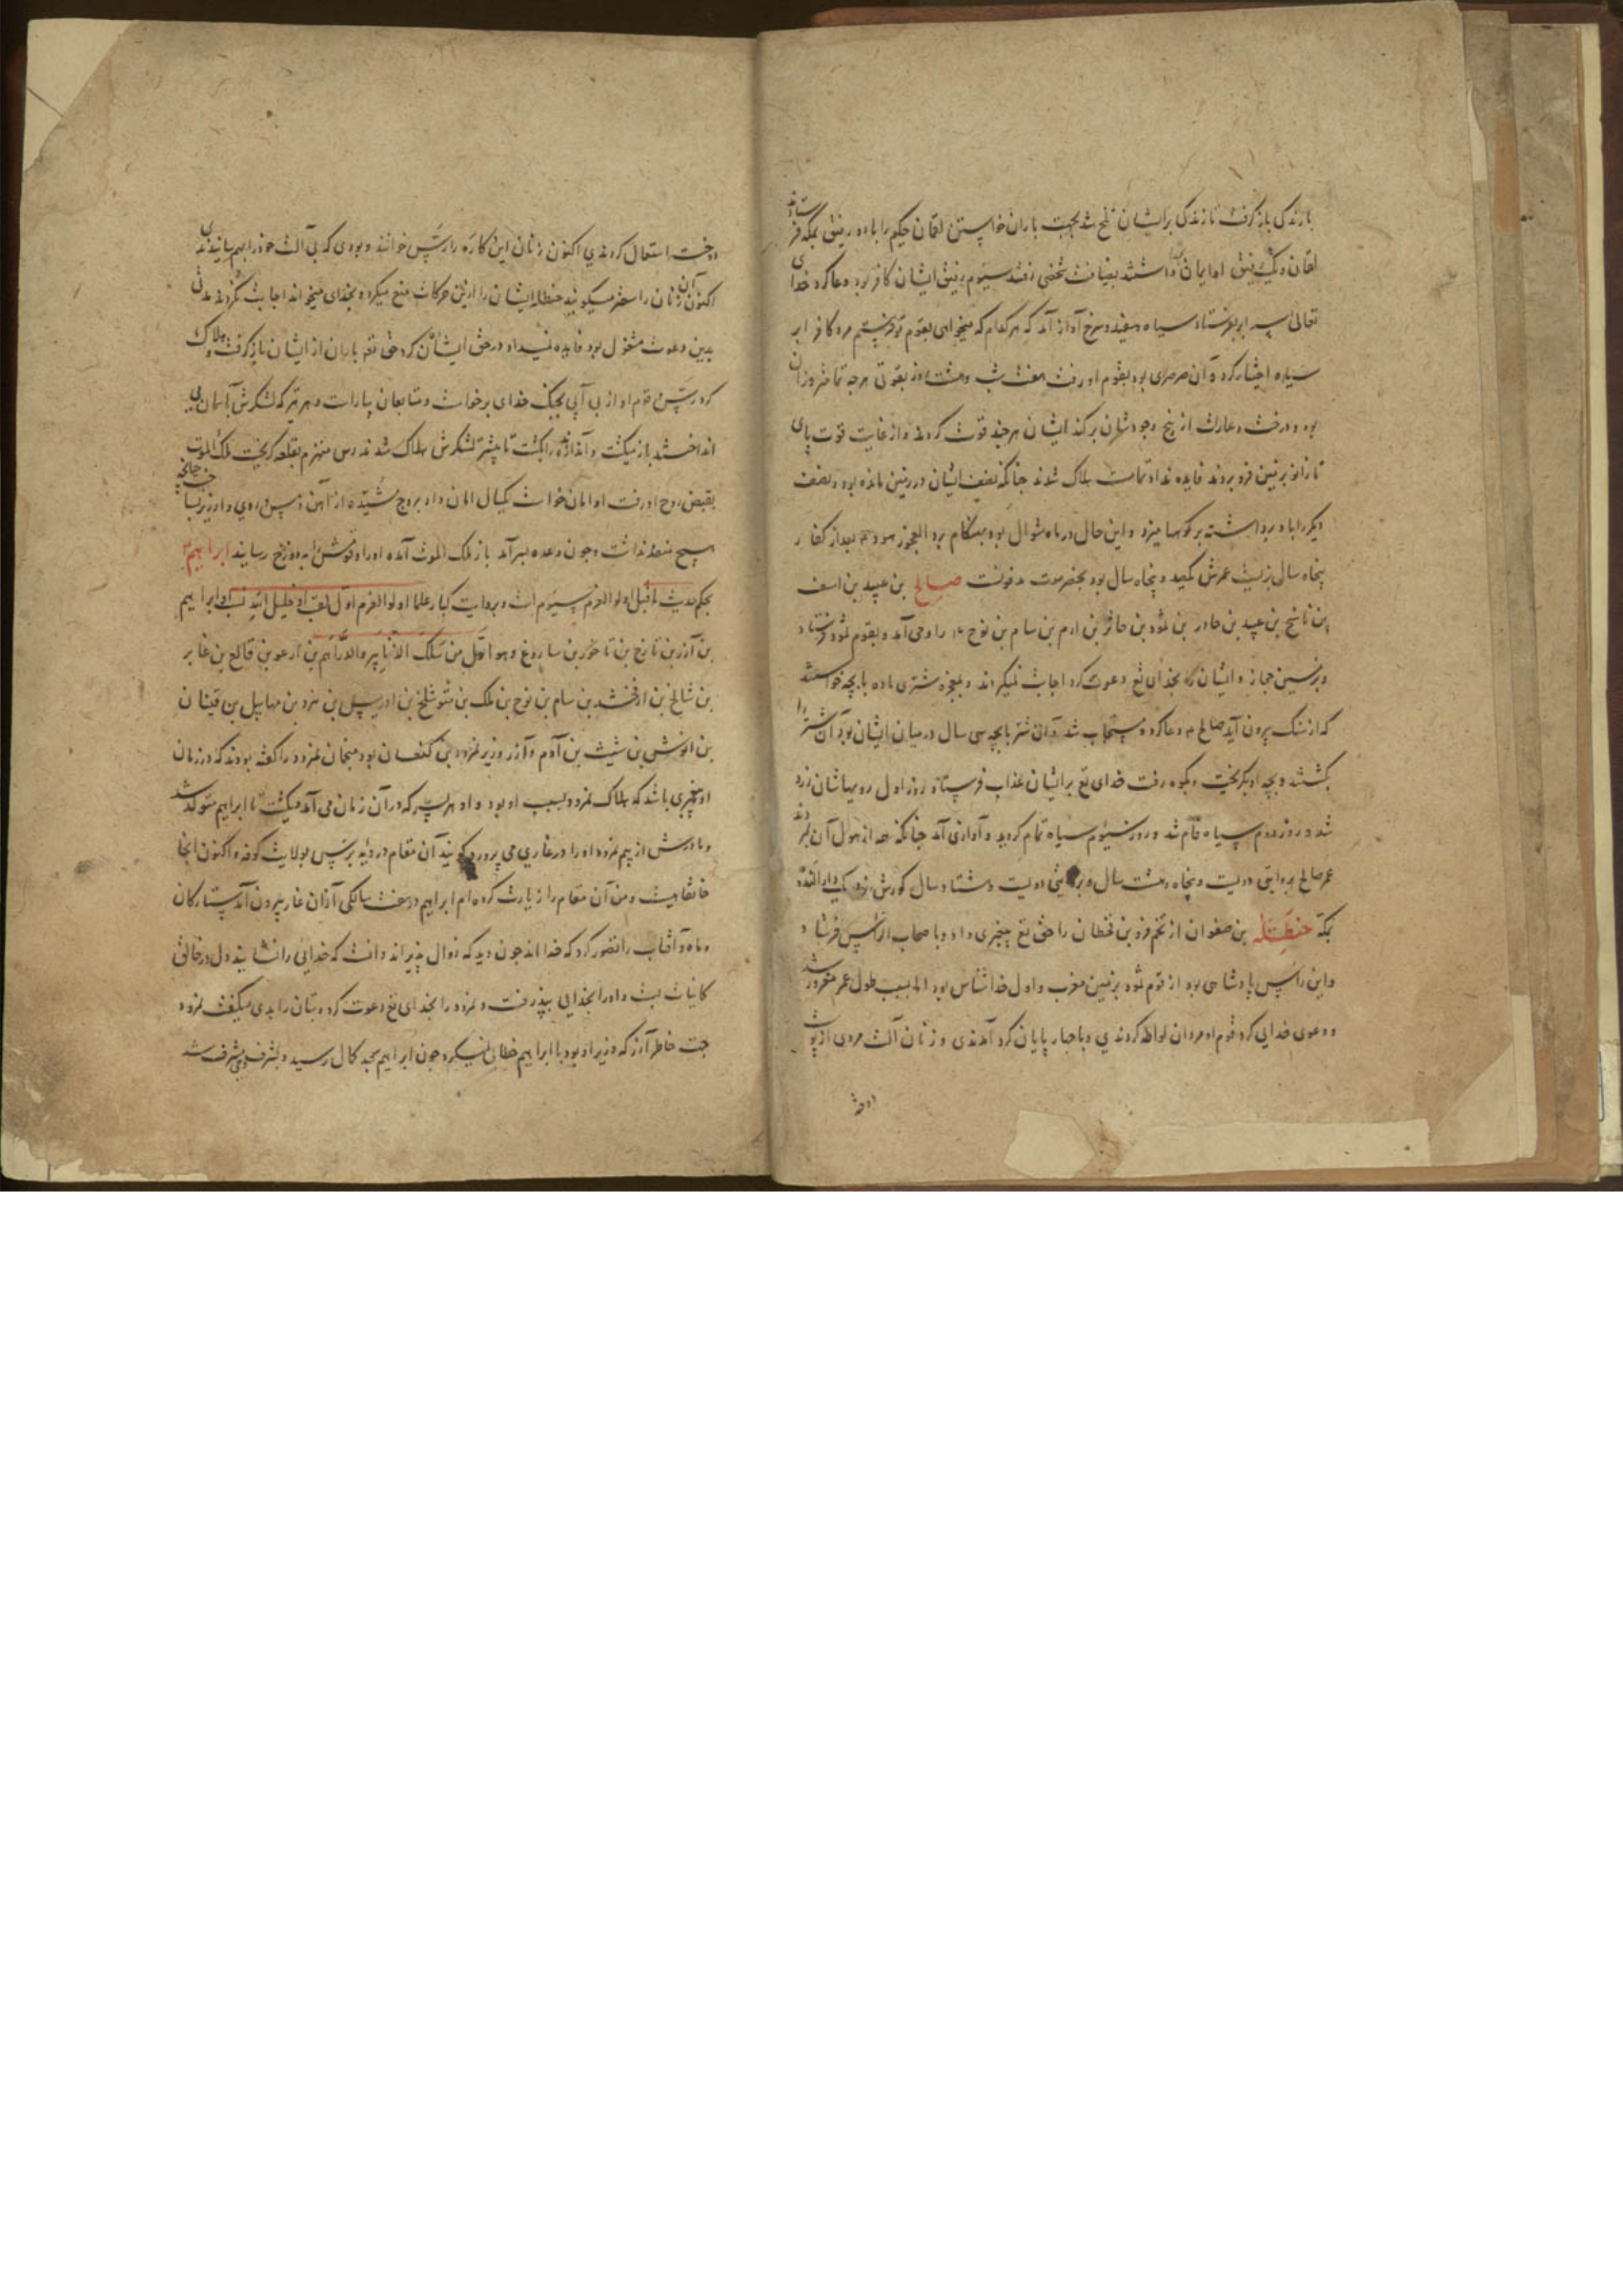 بارندگی باز گرفت تا زندگی بر ایشان تلخ شد بجهت باران خواستن لقمان حکیم را با دو رفیق بمکه فرستادند
لقمان و یک رفیق او ایمان داشتند بضیافت شخصی رفتند سیوم رفیق ایشان کافر بود دعا کرد خدای
تعالی سه ابر بفرستاد سیاه و سفید و سرخ آواز آمد که هر کدام که میخواهی بقوم تو فرستیم مرد کافر ابر
سیاه اختیار کرد و آن صرصری بود بقوم او رفت هفت شب و هشت روز بقوتی هرچه تمامتر وزان
بود و درخت و عمارت از بیخ و جودشان برکند ایشان هر چند قوت کردند و از غایت قوت پای
تا زانو بزمین فرو بردند فایده نداد تمامت هلاک شدند جنانکه نصف ایشان در زمین مانده بود و نصف
دیگر را باد برداشته بر کوهها میزد و این حال در ماه شوال بود بهنگام برد العجوز هود ع بعد از کفار
پنجاه سال بزیست عمرش کصد و پنجاه سال بود بحضرموت مدفونست صالح بن عبید بن اسف
بن ناشخ بن عبید بن حادر بن ثمود بن حاثر بن ارم بن سام بن نوح ع را وحی آمد و بقوم ثمود فرستاد
و بزمین حجاز و ایشان را بخدای تع دعوت کرد اجابت نمیکردند و بمعجزه شتری ماده با بچه خواستند
که از سنک بیرون آید صالح ع دعا کرد مستجاب شد و آن شتر با بچه سی سال در میان ایشان بود آن شتر را
بکشتند و بچه او بکریخت و بکوه رفت خدای تع بر ایشان عذاب فرستاد روز اول رویهاشان زرد
شد و روز دوم سیاه فام شد و روز سیوم سیاه تمام کردید و آوازی آمد جنانکه همه از هول آن بمردند
عمر صالح بروایتی دویست و پنجاه و هشت سال و بروایتی دویست و هشتاد سال کورش نزدیک دار الندوه
بمکه حنظله بن صفوان از تخم فرد بن قحطان را حق تع پیغبری داد و با صحاب الرس فرستاد
و این راس پادشاهی بود از قوم ثمود بزمین مغرب و اول خداشناس بود اما بسبب طول عمر مغرور شد
و دعوی خدایی کرد قوم او مردان لواطه کردندی و با جهارپایان کرد آمدندی و زنان آلت مردی از پوست
و دخت
درخت استعمال کردندی اکنون زنان این کاره را رسی خوانند و بودی که بی آلت خود را بهم سانیدندی
اکنون آن زنان را سعتر میکویند حنظله ایشان را ازین حرکات منع میکرد و بخدای میخواند اجابت نکردند مدتی
بدین دعوت مشغول بود فایده نمیداد در حق ایشان کرد حق تع باران از ایشان باز کرفت و هلاک
کرد رس قوم او از بی آبی بجنک خدای برخاست و متابعان بیاراست و هر تیر که لشکرش بآسمان می
انداختند باز میکشت و اندازنده را بکشت تا بیشتر لشکرش هلاک شدند رس منهزم بقلعه کریخت ملک الموت
بقبض روح او رفت او امان خواست یکسال امان داد بروج مشیده از آهن و مس و روی و ارزیز بساخت جنانکه
هیچ منفذ نداشت و جون وعده بسر آمد باز ملک الموت آمده او را و قومش را بدوزخ رسانید ابراهیم ع
بحکم حدیث ماقبل اولو العزم سیوم است و بروایت کبار علما اولو العزم اول لقب او خلیل الله نسب او ابراهیم
بن آزر بن تارخ بن ناحور بن ساروغ و هو اول من سلک الدنانیر و الدراهم بن ارعو بن فالغ بن عابر
بن شالخ بن ارفخشد بن سام بن نوح بن لمک بن متوشلخ بن ادریس بن یرد بن مهلاییل بن قینان
بن انوش بن شیث بن آدم و آزر وزیر نمرود بن کنعان بود منجمان نمرود را کفته بودند که در زمان
او پیغمبری باشد که هلاک نمرود بسبب او بود و او هر پسر که در آن زمان می آمد میکشت تا ابراهیم متولد شد
و مادرش از بیم نمرود او را در غاری می پرورد کویند آن مقام در دیه برس بولایت کوفه و اکنون آنجا
خانقاهیست و من آن مقام را زیارت کرده ام ابراهیم در هفت سالکی از آن غار بیرون آمد ستارکان
و ماه و آفتاب را تصور کرد که خدا اند جون دید که زوال پذیراند دانست که خدایی را نشایند دل در خالق
کاینات بست و او را بخدایی بپذرفت و نمرود را بخدای تع دعوت کرد و بتان را بدی میکفت نمرود
جهت خاطر آزر که وزیر او بود با ابراهیم خطابی نمیکرد جون ابراهیم بحد کمال رسید و بشرف وحی مشرف شد